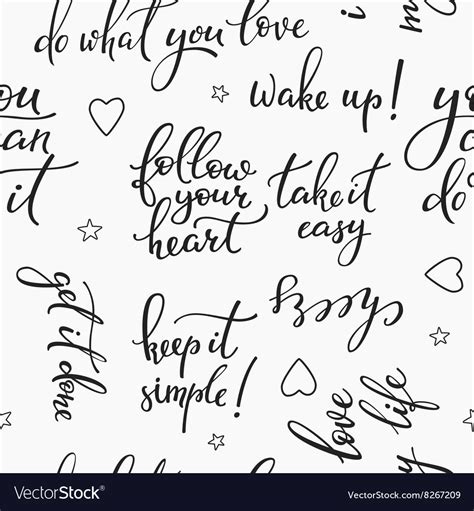 do what you love
wake up!
you
can
it
yo
do
follow
your
heart
take it
easy
get it done
keep it
simple!
love
life
VectorStock®
VectorStock.com/8267209